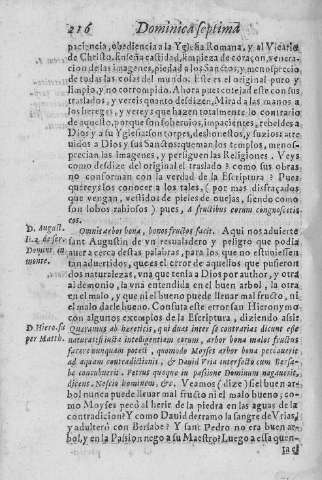 216 Dominica septima
paciencia, obediencia a la Yglesia Romana, y al Vicario
de Christo. Enseña castidad, limpieza de coraçon, venera-
cion de las imagenes, piedad a los Sanctos, y menosprecio
de todas las cosas del mundo. Este es el original puro y
limpio, y no corrompido. Ahora pues cotejad este con sus
traslados, y vereis quanto desdizen. Mirad a las manos a
los hereges, y vereys que hazen totalmente lo contrario
de aquello, porque son soberuios, impacientes, rebeldes a
Dios y a su Yglesia: son torpes, deshonestos, y suzios: atre
uidos a Dios y sus Sanctos: queman los templos, menos-
precian las imagenes, y persiguen las Religiones. Veys
como desdize del original el traslado? como sus obras
no conforman con la verdad de la Escriptura? Pues
quereys los conocer a los tales, (por mas disfraçados
que vengan, vestidos de pieles de ouejas, siendo como
son lobos rabiosos) pues, a fructibus eorum cognoscetis
eos.
D. August.
li. 2. de ser.
Domini in
monte.
Omnis arbor bona, bonos fructus facit. Aqui nos aduierte
sant Augustin de vn resualadero y peligro que podia
auer acerca destas palabras, para los que no estuuiessen
tan aduertidos, que es el error de aquellos que pusieron
dos naturalezas, vna que tenia a Dios por author, y otra
al demonio, la vna entendida en el buen arbol, la otra
en el malo, y que ni el bueno puede lleuar mal fructo, ni
el malo darle bueno. Confuta este error san Hieronymo
con algunos exemplos de la Escriptura, diziendo assi:
D. Hiero. su
per Matth.
Quæramus ab hæreticis, qui duas inter se contrarias dicunt esse
naturas: si iuxta intelligentiam eorum, arbor bona malos fructus
facere nunquam potest, quomodo Moyses arbor bona peccauerit
ad aquam contradictionis, & Dauid Vria interfecto cum Bersa-
be concubuerit. Petrus quoque in passione Dominum negauerit,
dicens, Nescio hominem, &c. Veamos (dize) si el buen ar-
bol nunca puede lleuar mal fructo ni el malo bueno; co-
mo Moyses pecò al herir de la piedra en las aguas de la
contradicion? Y como Dauid derramo la sangre de Vrias,
y adulterò con Bersabe? Y sant Pedro no era buen ar-
bol, y en la Passion nego a su Maestro? Luego a essa quen-